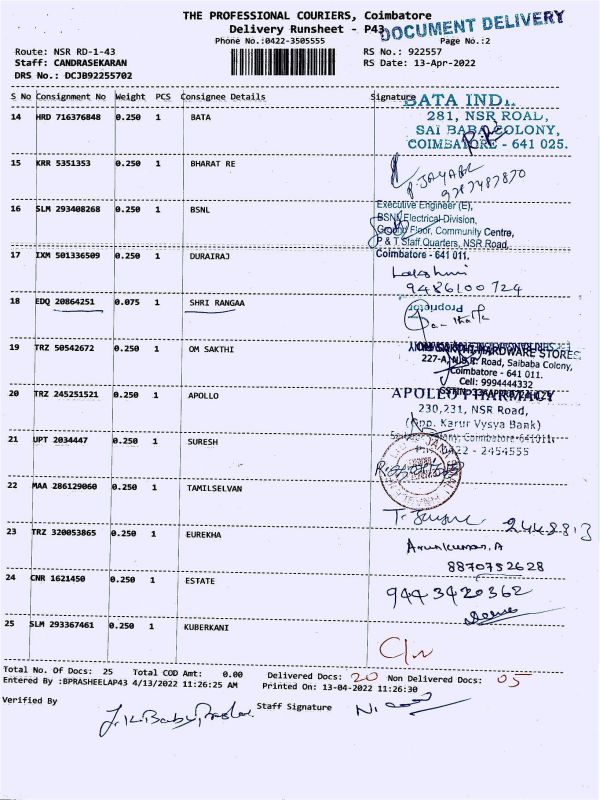 THE PROFESSIONAL COURIERS, Coimbatore
Delivery Runsheet - P43
DOCUMENT DELIVERY
Phone No.:0422-3505555 Page No.:2
Route: NSR RD-1-43 RS No.: 922557
Staff: CANDRASEKARAN RS Date: 13-Apr-2022
DRS No.: DCJB92255702
S No Consignment No Weight PCS Consignee Details Signature
14 HRD 716376848 0.250 1 BATA
BATA INDI
281, NSR ROAD,
SAI BABA COLONY,
COIMBATORE - 641 025.
15 KRR 5351353 0.250 1 BHARAT RE
P. JAYABAL
9787487870
16 SLM 293408268 0.250 1 BSNL
Executive Engineer (E),
BSNL Electrical Division,
Ground Floor, Community Centre,
P & T Staff Quarters, NSR Road,
Coimbatore - 641 011.
17 IXM 501336509 0.250 1 DURAIRAJ
Lakshmi
9486100724
18 EDQ 20864251 0.075 1 SHRI RANGAA
Proprietor
19 TRZ 50542672 0.250 1 OM SAKTHI
OM SAKTHI HARDWARE STORES
227-A, N.S.R. Road, Saibaba Colony,
Coimbatore - 641 011.
Cell: 9994444332
20 TRZ 245251521 0.250 1 APOLLO
APOLLO PHARMACY
230,231, NSR Road,
(Opp. Karur Vysya Bank)
Colony, Coimbatore-641011.
Ph: 0422 - 2454555
21 UPT 2034447 0.250 1 SURESH
22 MAA 286129060 0.250 1 TAMILSELVAN
23 TRZ 320053865 0.250 1 EUREKHA
Arunkumar.A
8870752628
24 CNR 1621450 0.250 1 ESTATE
9443420362
25 SLM 293367461 0.250 1 KUBERKANI
Total No. Of Docs: 25 Total COD Amt: 0.00 Delivered Docs: 20 Non Delivered Docs: 05
Entered By :BPRASHEELAP43 4/13/2022 11:26:25 AM Printed On: 13-04-2022 11:26:30
Verified By Staff Signature